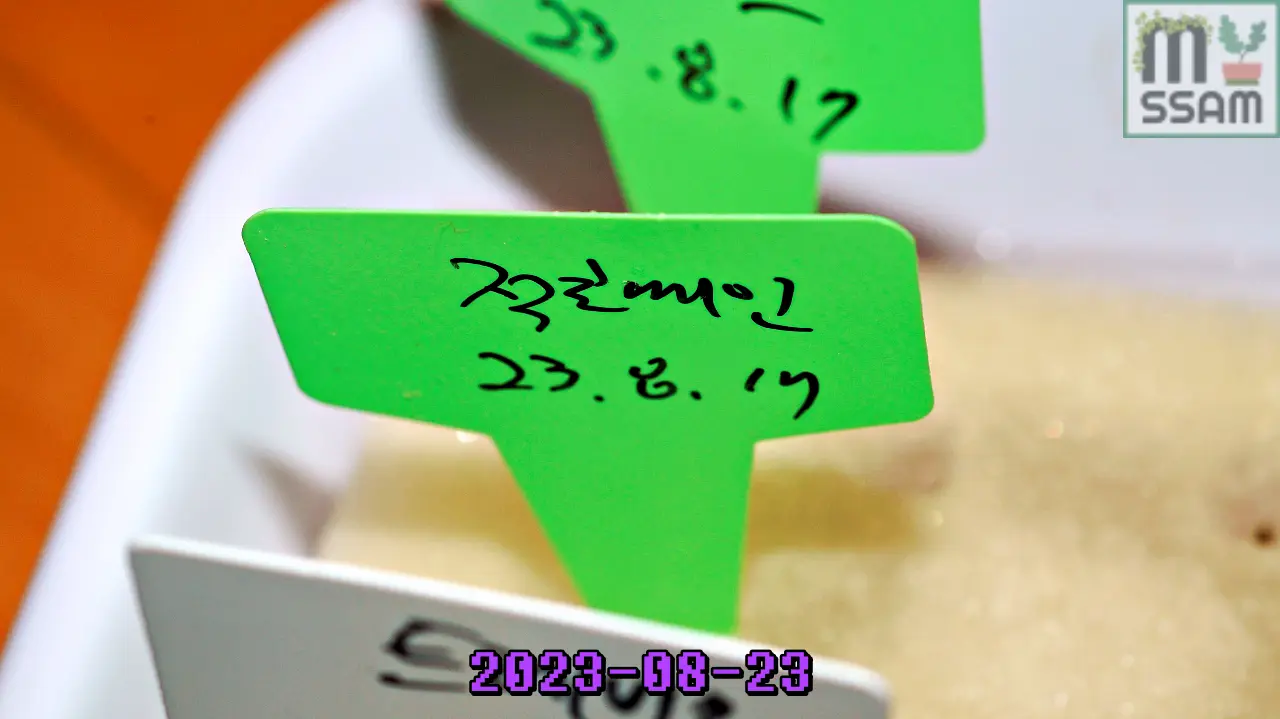 23.8.17
M
SSAM
적근때인
23.8.17
2023-08-23